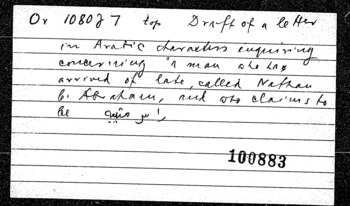 Or 1080J 7 top Draft of a letter
in Arabic characters enquiring
concerning 'a man who has
arrived of late, called Nathan
b. Abraham, and who claims to
be راس متيبه
100883